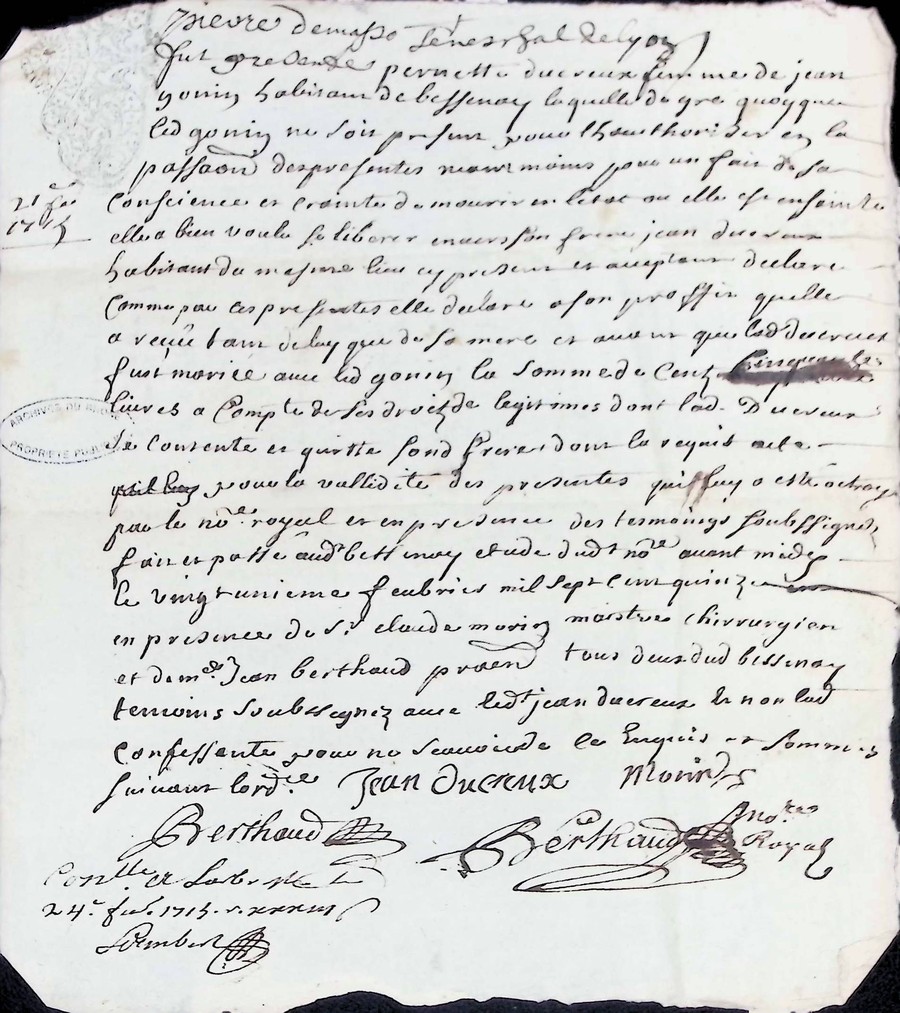 Pierre demasso seneschal de lyon
fut presente pernette ducreux femme de jean
gonin habitant de bessenay laquelle de gre quoyque
led gonin ne soit present pour lhauthoriser en la
passaon despresentes neant moins pour un fait de sa
21e feb
1715
conscience et crainte de mourir en letat ou elle est ensainte
elle a bien voulu se liberer envers son frere jean ducreux
habitant du mesme lieu cy present et acceptant declare
comme par ces presentes elle declare a son proffit quelle
a reçu tant de luy que de sa mere et avant que lad ducreux
fust mariée avec led gonin la somme de cent
livres a compte de ses droitz de legitimes dont lad. Ducreux
ARCHIVES DU RHÔNE
PROPRIÉTÉ PUBLIQUE
se contente et quitte sond frere dont la requis acte
pour la vallidité des presentes qui luy a esté octroyé
par le nore royal et en presence des tesmoings soubssignez
fait et passé aud bessenay etude dudt nore avant midy
le vingt unieme feubrier mil sept cent quinze
en presence de sr claude morin maistre chirurgien
et de me Jean berthaud praen tous deux dud bessenay
temoins soubsegnez avec ledt jean ducreux et non lad
confessente pour ne scavoir de ce enquis et sommés
suivant lordce Jean ducreux Morin
Berthaud Berthaud nore Royal
Conlle a Labresle
24e feb. 1715.